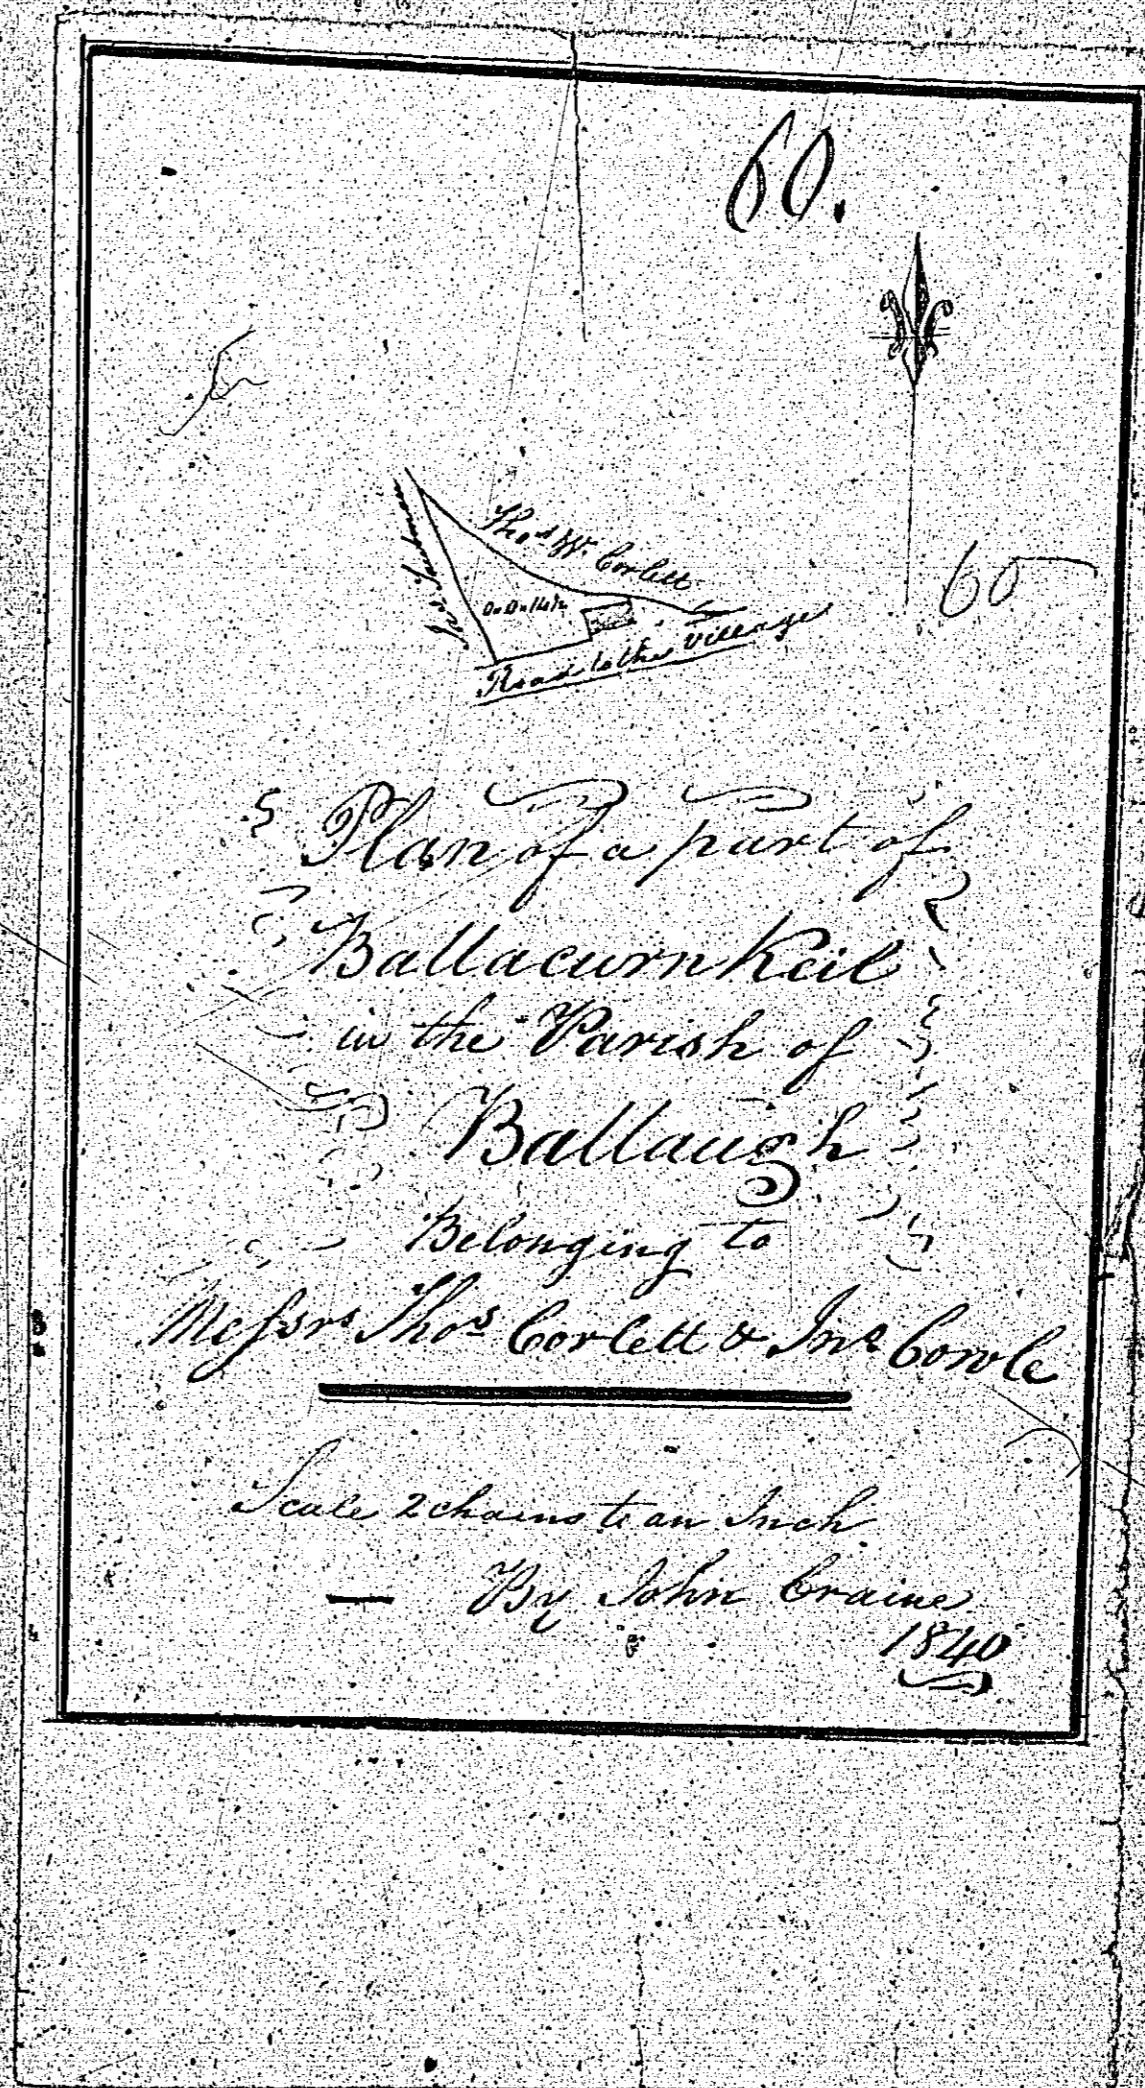 60.
60
Thos W. Corlett
0 „ 0 „ 14½
Road to the Village
Plan of a part of
Ballacurn Keil
in the Parish of
Ballaugh
Belonging to
Messrs Thos Corlett & Jno Cowle
Scale 2 chains to an Inch
By John Craine
1840